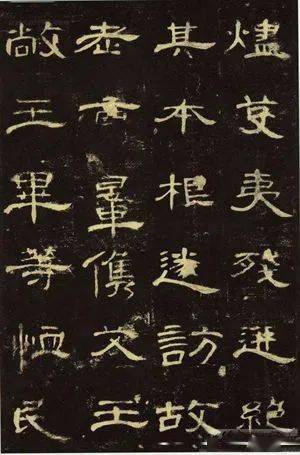 燼芟夷殘迸絕
其本根遂訪故
老商量儁艾王
敞王畢等恤民